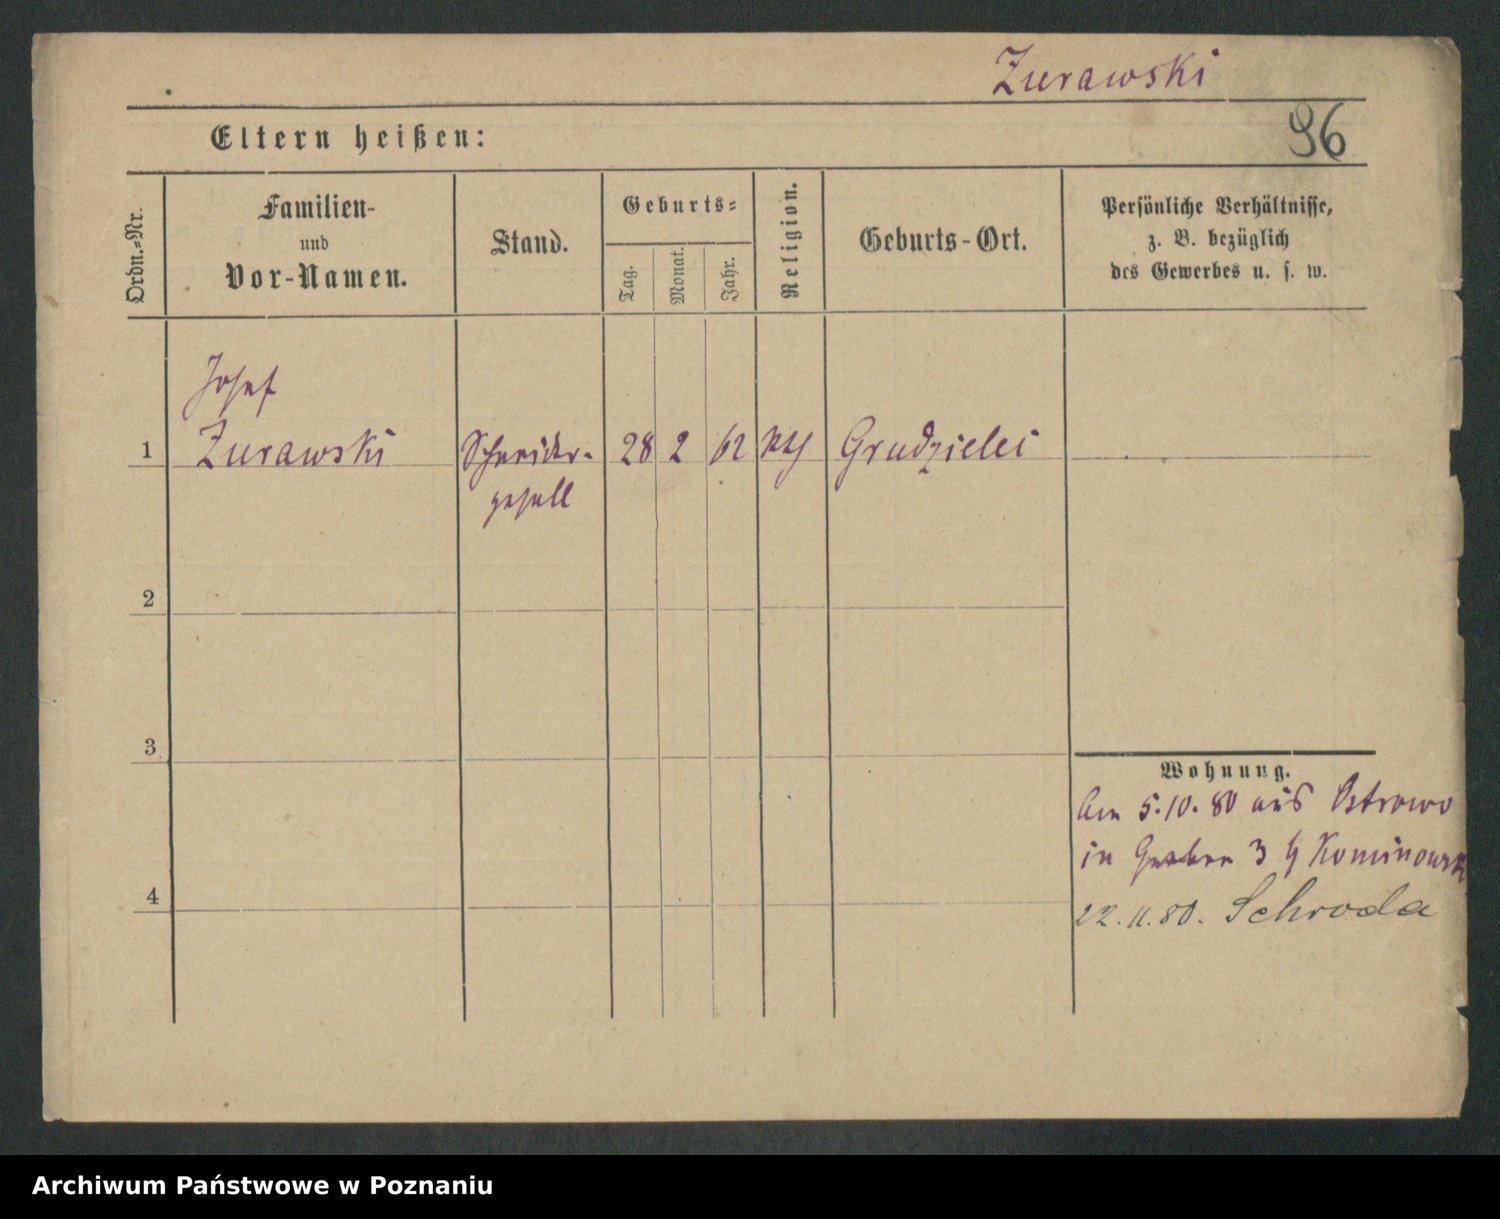 Zurawski
96
Eltern heißen:
Ordn.-Nr.
Familien-
und
Vor-Namen.
Stand.
Geburts-
Tag.
Monat.
Jahr.
Religion.
Geburts-Ort.
Persönliche Verhältnisse,
z. B. bezüglich
des Gewerbes u. s. w.
Josef
1 Zurawski Schneider- 28 2 62 kth Grudzielei
gesell
2
3
Wohnung.
Am 5.10.80 aus Ostrowo
in 3
4
22.11.80. Schroda
Archiwum Państwowe w Poznaniu